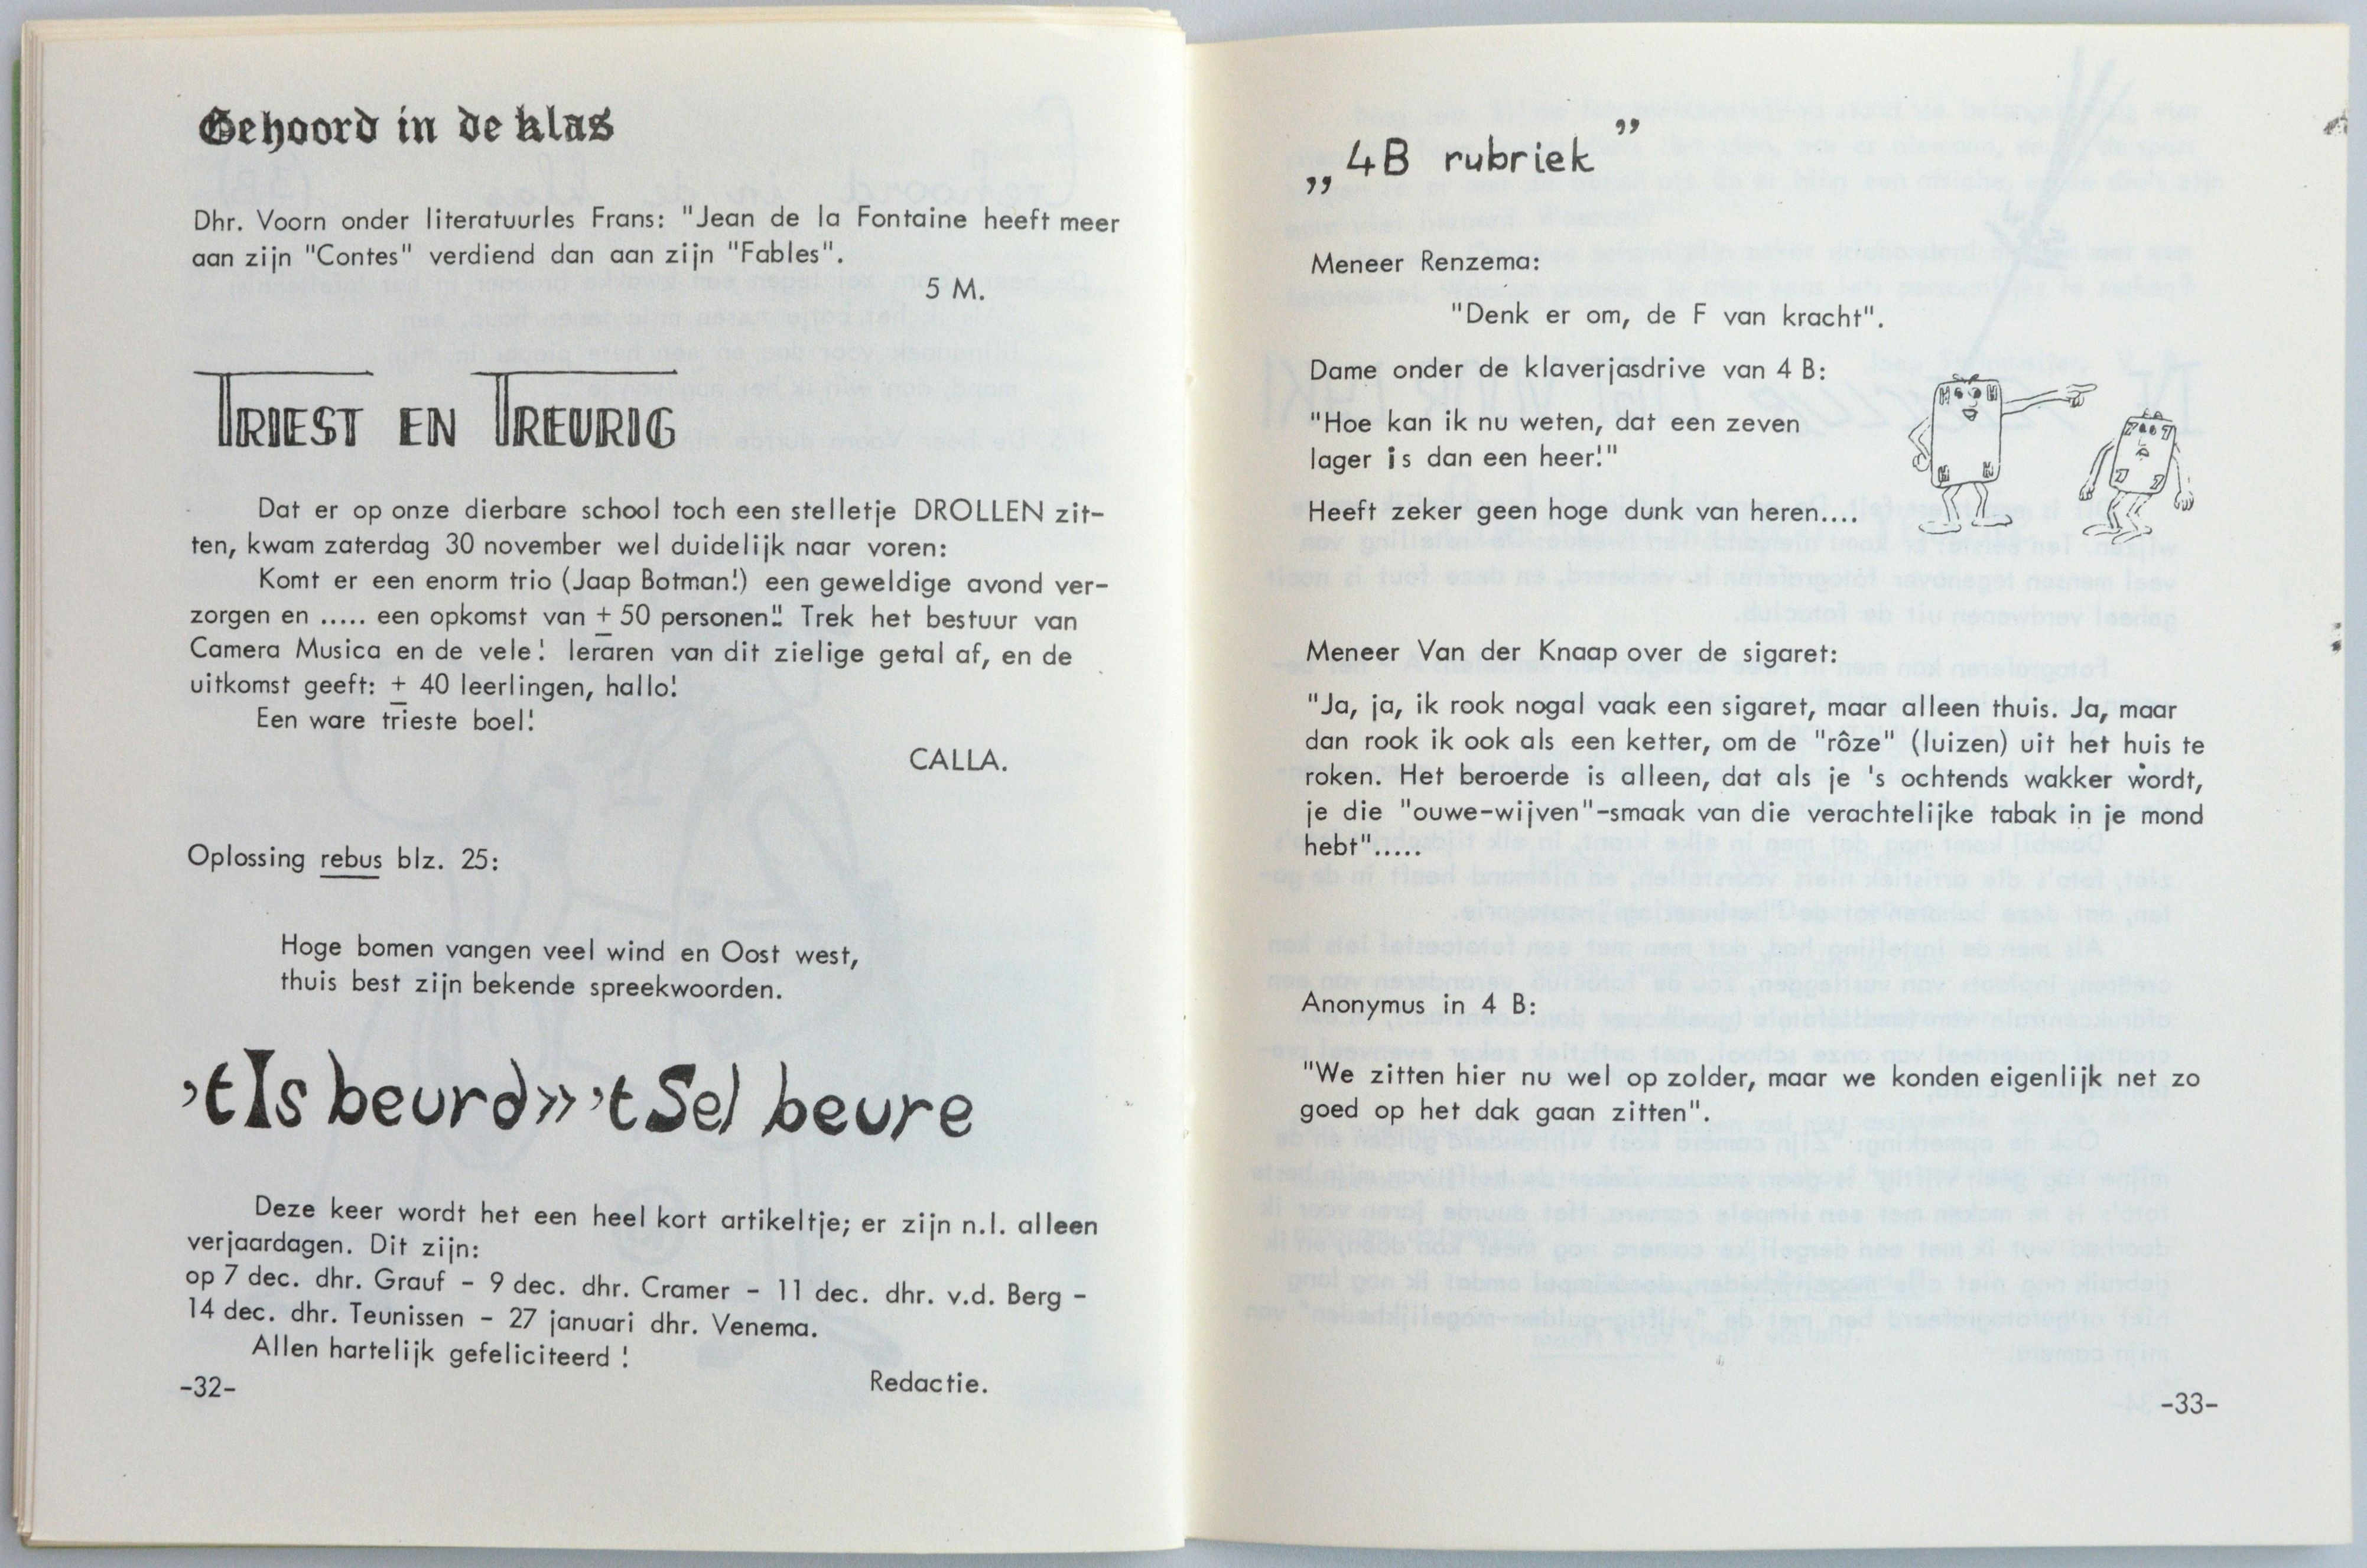 Gehoord in de klas
Dhr. Voorn onder literatuurles Frans: "Jean de la Fontaine heeft meer
aan zijn "Contes" verdiend dan aan zijn "Fables".
5 M.
TRIEST EN TREURIG
Dat er op onze dierbare school toch een stelletje DROLLEN zit-
ten, kwam zaterdag 30 november wel duidelijk naar voren:
Komt er een enorm trio (Jaap Botman!) een geweldige avond ver-
zorgen en ..... een opkomst van ± 50 personen!! Trek het bestuur van
Camera Musica en de vele! leraren van dit zielige getal af, en de
uitkomst geeft: ± 40 leerlingen, hallo!
Een ware trieste boel!
CALLA.
Oplossing rebus blz. 25:
Hoge bomen vangen veel wind en Oost west,
thuis best zijn bekende spreekwoorden.
't Is beurd»'t Sel beure
Deze keer wordt het een heel kort artikeltje; er zijn n.l. alleen
verjaardagen. Dit zijn:
op 7 dec. dhr. Grauf - 9 dec. dhr. Cramer - 11 dec. dhr. v.d. Berg -
14 dec. dhr. Teunissen - 27 januari dhr. Venema.
Allen hartelijk gefeliciteerd !
Redactie.
-32-
„4B rubriek”
Meneer Renzema:
"Denk er om, de F van kracht".
Dame onder de klaverjasdrive van 4 B:
"Hoe kan ik nu weten, dat een zeven
lager is dan een heer!"
Heeft zeker geen hoge dunk van heren....
H H
H H
7 7
7 7
Meneer Van der Knaap over de sigaret:
"Ja, ja, ik rook nogal vaak een sigaret, maar alleen thuis. Ja, maar
dan rook ik ook als een ketter, om de "rôze" (luizen) uit het huis te
roken. Het beroerde is alleen, dat als je 's ochtends wakker wordt,
je die "ouwe-wijven"-smaak van die verachtelijke tabak in je mond
hebt".....
Anonymus in 4 B:
"We zitten hier nu wel op zolder, maar we konden eigenlijk net zo
goed op het dak gaan zitten".
-33-